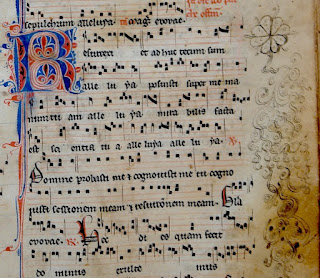 sepulchrum alleluya.
Resurrexi et adhuc tecum sum
alle lu ya posuisti super me ma
num tu am alle lu ya mira bilis facta
est sci entia tu a alle luya alle lu ya.
Domine probasti me et cognouisti me tu cogno
uisti sessionem meam et resurrectionem meam.
euouae. Hec di es quam fecit
dominus